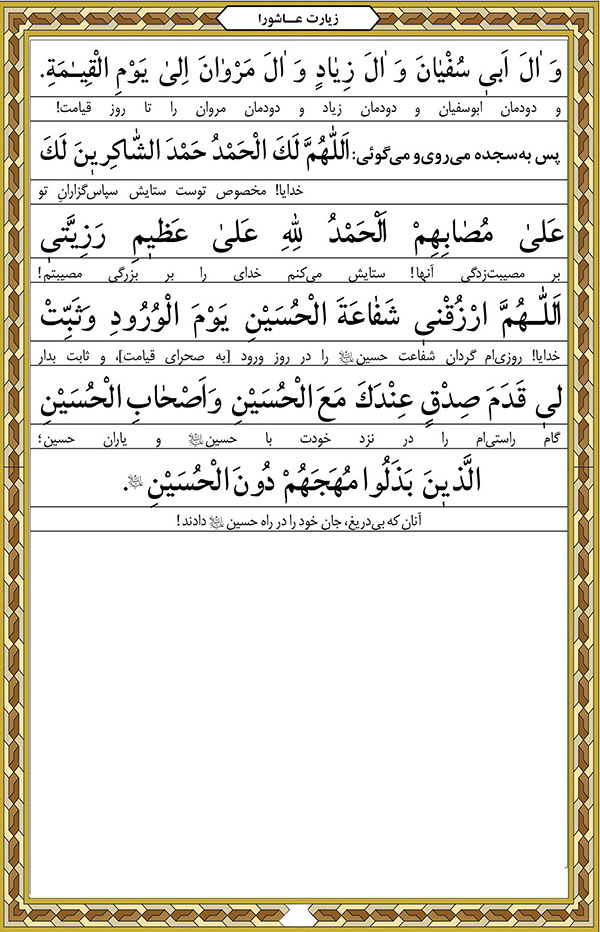 زیارت عـــاشورا
وَ اٰلَ اَبیٖ سُفْیٰانَ وَ اٰلَ زِیٰادٍ وَ اٰلَ مَرْوٰانَ اِلیٰ یَوْمِ الْقِیـٰمَةِ.
و دودمان ابوسفیان و دودمان زیاد و دودمان مروان را تا روز قیامت!
پس به‌سجده می‌روی‌و می‌گوئی: اَللّٰهُمَّ لَكَ الْحَمْدُ حَمْدَ الشّٰاکِرِیٖنَ لَكَ
خدایا! مخصوص توست ستایش سپاس‌گزارانِ تو
عَلیٰ مُصٰابِهِمْ اَلْحَمْدُ لِلّٰهِ عَلیٰ عَظیٖمِ رَزِیَّتیٖ
بر مصیبت‌زدگی آنها! ستایش می‌کنم خدای را بر بزرگی مصیبتم!
اَللّٰــهُمَّ ارْزُقْنیٖ شَفٰاعَةَ الْحُسَیْنِ یَوْمَ الْوُرُودِ وَثَبِّتْ
خدایا! روزی‌ام گردان شفاعت حسین را در روز ورود [به صحرای قیامت]، و ثابت بدار
لیٖ قَدَمَ صِدْقٍ عِنْدَكَ مَعَ الْحُسَیْنِ وَاَصْحٰابِ الْحُسَیْنِ
گام راستی‌ام را در نزد خودت با حسین و یاران حسین؛
الَّذیٖنَ بَذَلُوا مُهَجَهُمْ دُونَ الْحُسَیْنِ .
آنان که بی‌دریغ، جان خود را در راه حسین دادند!